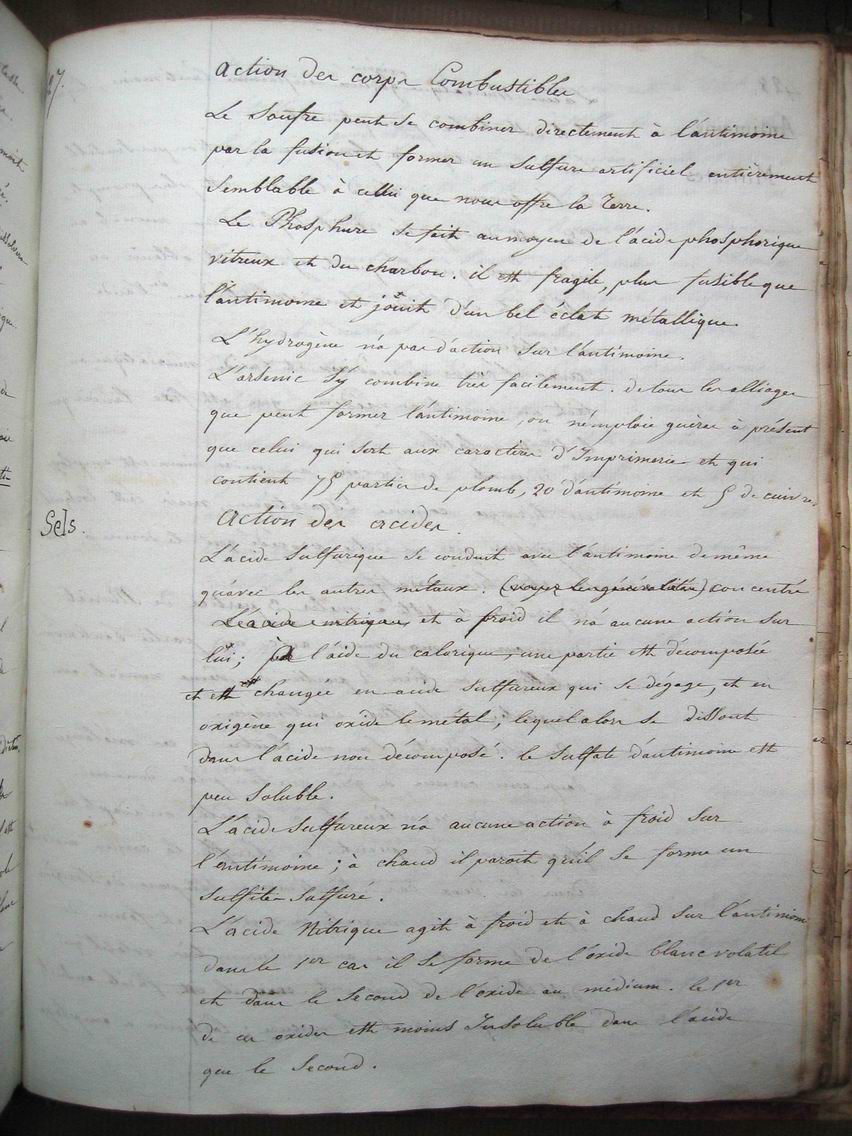 7.
Action des corps Combustibles
Le Soufre peut se combiner directement à l'antimoine
par la fusion et former un sulfure artificiel entièrement
Semblable à celui que nous offre la Terre.
Le Phosphure se fait au moyen de l'acide phosphorique
vitreux et du charbon. il est fragile, plus fusible que
l'antimoine et jouit d'un bel éclat métallique.
L'hydrogène n'a pas d'action sur l'antimoine.
L'arsenic s'y combine très facilement. de tous les alliages
que peut former l'antimoine, on n'emploie guères à présent
que celui qui sert aux caractères d'Imprimerie et qui
contient 75 parties de plomb, 20 d'antimoine et 5 de cuivre.
Sels.
Action des acides
L'acide Sulfurique se conduit avec l'antimoine de même
qu'avec les autres métaux. (voyez les généralités) concentré
et à froid il n'a aucune action sur
lui; par l'aide du calorique, une partie est décomposée
et est changée en acide Sulfureux qui se dégage, et en
oxigène qui oxide le métal; lequel alors se dissout
dans l'acide non décomposé. le Sulfate d'antimoine est
peu soluble.
L'acide Sulfureux n'a aucune action à froid sur
l'antimoine; à chaud il paroit qu'il se forme un
Sulfite Sulfuré.
L'acide Nitrique agit à froid et à chaud sur l'antimoine
dans le 1er cas il se forme de l'oxide blanc volatil
et dans le second de l'oxide au médium. le 1er
de ces oxides est moins Insoluble dans l'acide
que le Second.